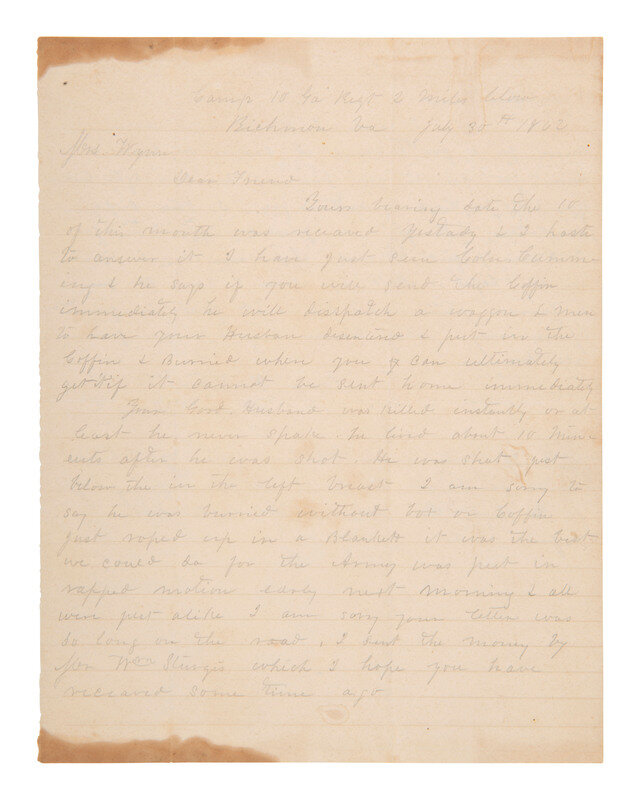 Camp 10 Ga Regt 2 Miles below
Richmon Va July 30th 1862
Mrs. Wynn
Dear Friend
Yours bearing date the 10
of this month was recieved yestady & I haste
to answer it I have just seen Colo. Cumm
ing & he says if you will send the Coffin
immediately he will disspatch a waggon & men
to have your Husban disentered & put in the
Coffin & Burried when you can ultimately
get it if it cannot be sent home immediately
Your Good Husband was killed instantly or at
least he never spake he lived about 10 Min
euts after he was shot. He was shot just
below the in the left breast I am sorry to
say he was burried without box or Coffin
just roped up in a Blankett it was the best
we could do for the Army was put in
rapped motion early next morning & all
were put alike I am sorry your letter was
so long on the road, I sent the money by
Mr Wm Sturgis which I hope you have
recieved some time ago